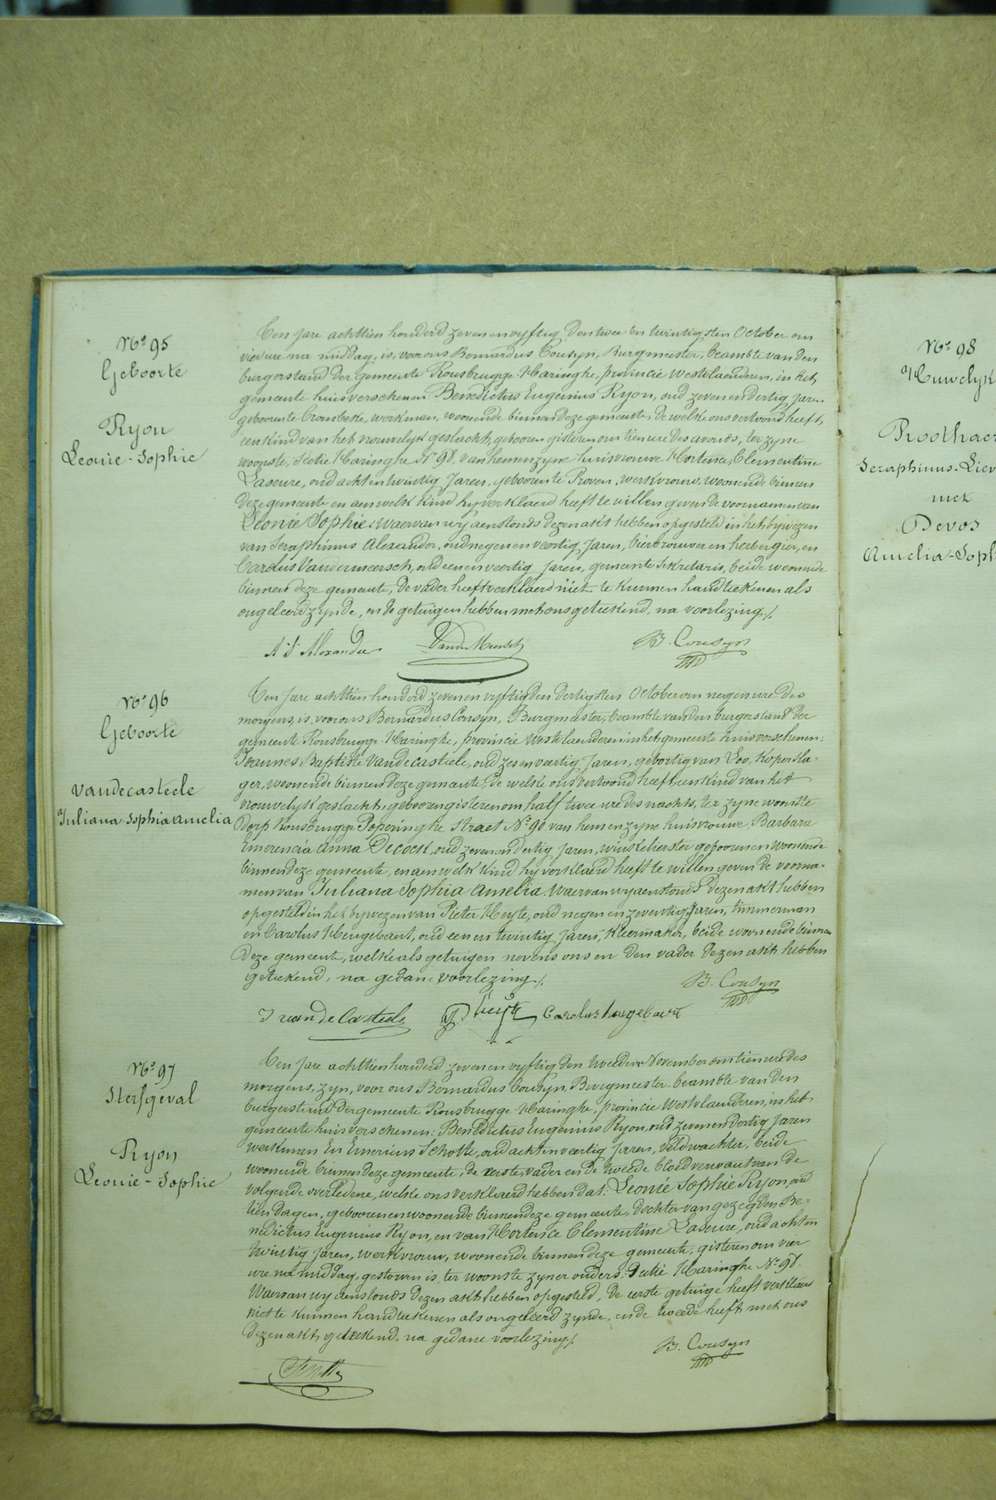 N° 95
Geboorte
Ryon
Leonie-Sophie
Ten jare achttien honderd zeven en vyftig den twee en twintigsten October om
vier ure na middag, is, voor ons Bernardus Cousyn, Burgmeester, beambte van den
burgerstand der gemeente Rousbrugge-Haringhe, provincie Westvlaenderen, in het
gemeente huis verschenen Benedictus Eugenius Ryon, oud zeven en dertig jaren
geboren te Crombeke, werkman, woonende binnen deze gemeente, de welke ons vertoond heeft,
een kind van het vrouwelyk geslacht, geboren gisteren om tien ure des avonds, ter zyne
woonste, Sectie Haringhe N° 98, van hem en zyne huisvrouwe Hortence Clementine
Laseure, oud acht en twintig jaren, geboren te Proven, werkvrouw, woonende binnen
deze gemeente en aen welk kind hy verklaerd heeft te willen geven de voornamen van
Leonie Sophie; waervan wy aenstonds dezen akt hebben opgesteld in het bywezen
van Seraphinus Alexander, oud negen en veertig jaren, bierbrouwer en herbergier, en
Carolus Vandermeersch, oud een en veertig jaren, gemeente Sekretaris, beide woonende
binnen deze gemeente, De vader heeft verklaerd niet te kunnen handteekenen als
ongeleerd zynde, en de getuigen hebben met ons geteekend, na voorlezing./.
Alexander VanderMeersch B. Cousyn
N° 96
Geboorte
Vandecasteele
Juliana-Sophia Amelia
Ten jare achttien honderd zeven en vyftig den dertigsten October om negen ure des
morgens, is, voor ons Bernardus Cousyn, Burgmeester, beambte van den burgerstand der
gemeente Rousbrugge-Haringhe, provincie Westvlaenderen in het gemeente huis verschenen:
Joannes Baptiste Vandecasteele, oud zes en veertig jaren, geboortig van Loo, Koperslager,
woonende binnen deze gemeente, de welke ons vertoond heeft een kind van het
vrouwelyk geslacht, geboren gisteren om half twee ure des nachts, ter zyne woonste
Dorp Rousbrugge Poperinghe Straet N° 90 van hem en zyne huisvrouwe, Barbara
Emerencia Anna Decock, oud zeven en dertig jaren, winkelierster geboren en woonende
binnen deze gemeente, en aen welk kind hy verklaerd heeft te willen geven de voorna-
men van Juliana Sophia Amelia waervan wy aenstonds dezen akt hebben
opgesteld in het bywezen van Pieter Heyte, oud negen en zeventig jaren, timmerman
en Carolus Hengebaert, oud een en twintig jaren, Kleermaker, beide woonende binnen
deze gemeente, welke als getuigen nevens ons en den vader dezen akt hebben
geteekend, na gedane voorlezing./.
J Vande Casteele P Heyte Carolus hengebaert B. Cousyn
N° 97
Sterfgeval
Ryon
Leonie-Sophie
Ten jare achttien honderd zeven en vyftig den tweeden November om tien ure des
morgens, zyn, voor ons Bernardus Cousyn, Burgmeester beambte van den
burgerstand der gemeente Rousbrugge-Haringhe, provincie Westvlaenderen, in het
gemeente huis verschenen: Benedictus Eugenius Ryon, oud zeven en dertig jaren
werkman en Emerius Scholte, oud acht en veertig jaren, veldwachter, beide
woonende binnen deze gemeente, de eerste vader en de tweede bloedverwant van de
volgende overledene, welke ons verklaerd hebben dat: Leonie Sophie Ryon, oud
tien dagen, geboren en woonende binnen deze gemeente, dochter van gezegden Be-
nedictus Eugenius Ryon, en van Hortence Clementine Laseure, oud acht en
twintig jaren, werkvrouw, woonende binnen deze gemeente, gisteren om vier
ure na middag, gestorven is, ter woonste zyner ouders, Sectie Haringhe N° 98.
Waervan wy aenstonds dezen akt hebben opgesteld, De eerste getuige heeft verklaerd
niet te kunnen handteekenen als ongeleerd zynde, en de tweede heeft met ons
dezen akt geteekend, na gedane voorlezing./.
B. Cousyn
N° 98
Huwelyk
Proothaer
Seraphinus-Liev
met
Devos
Amelia-Soph